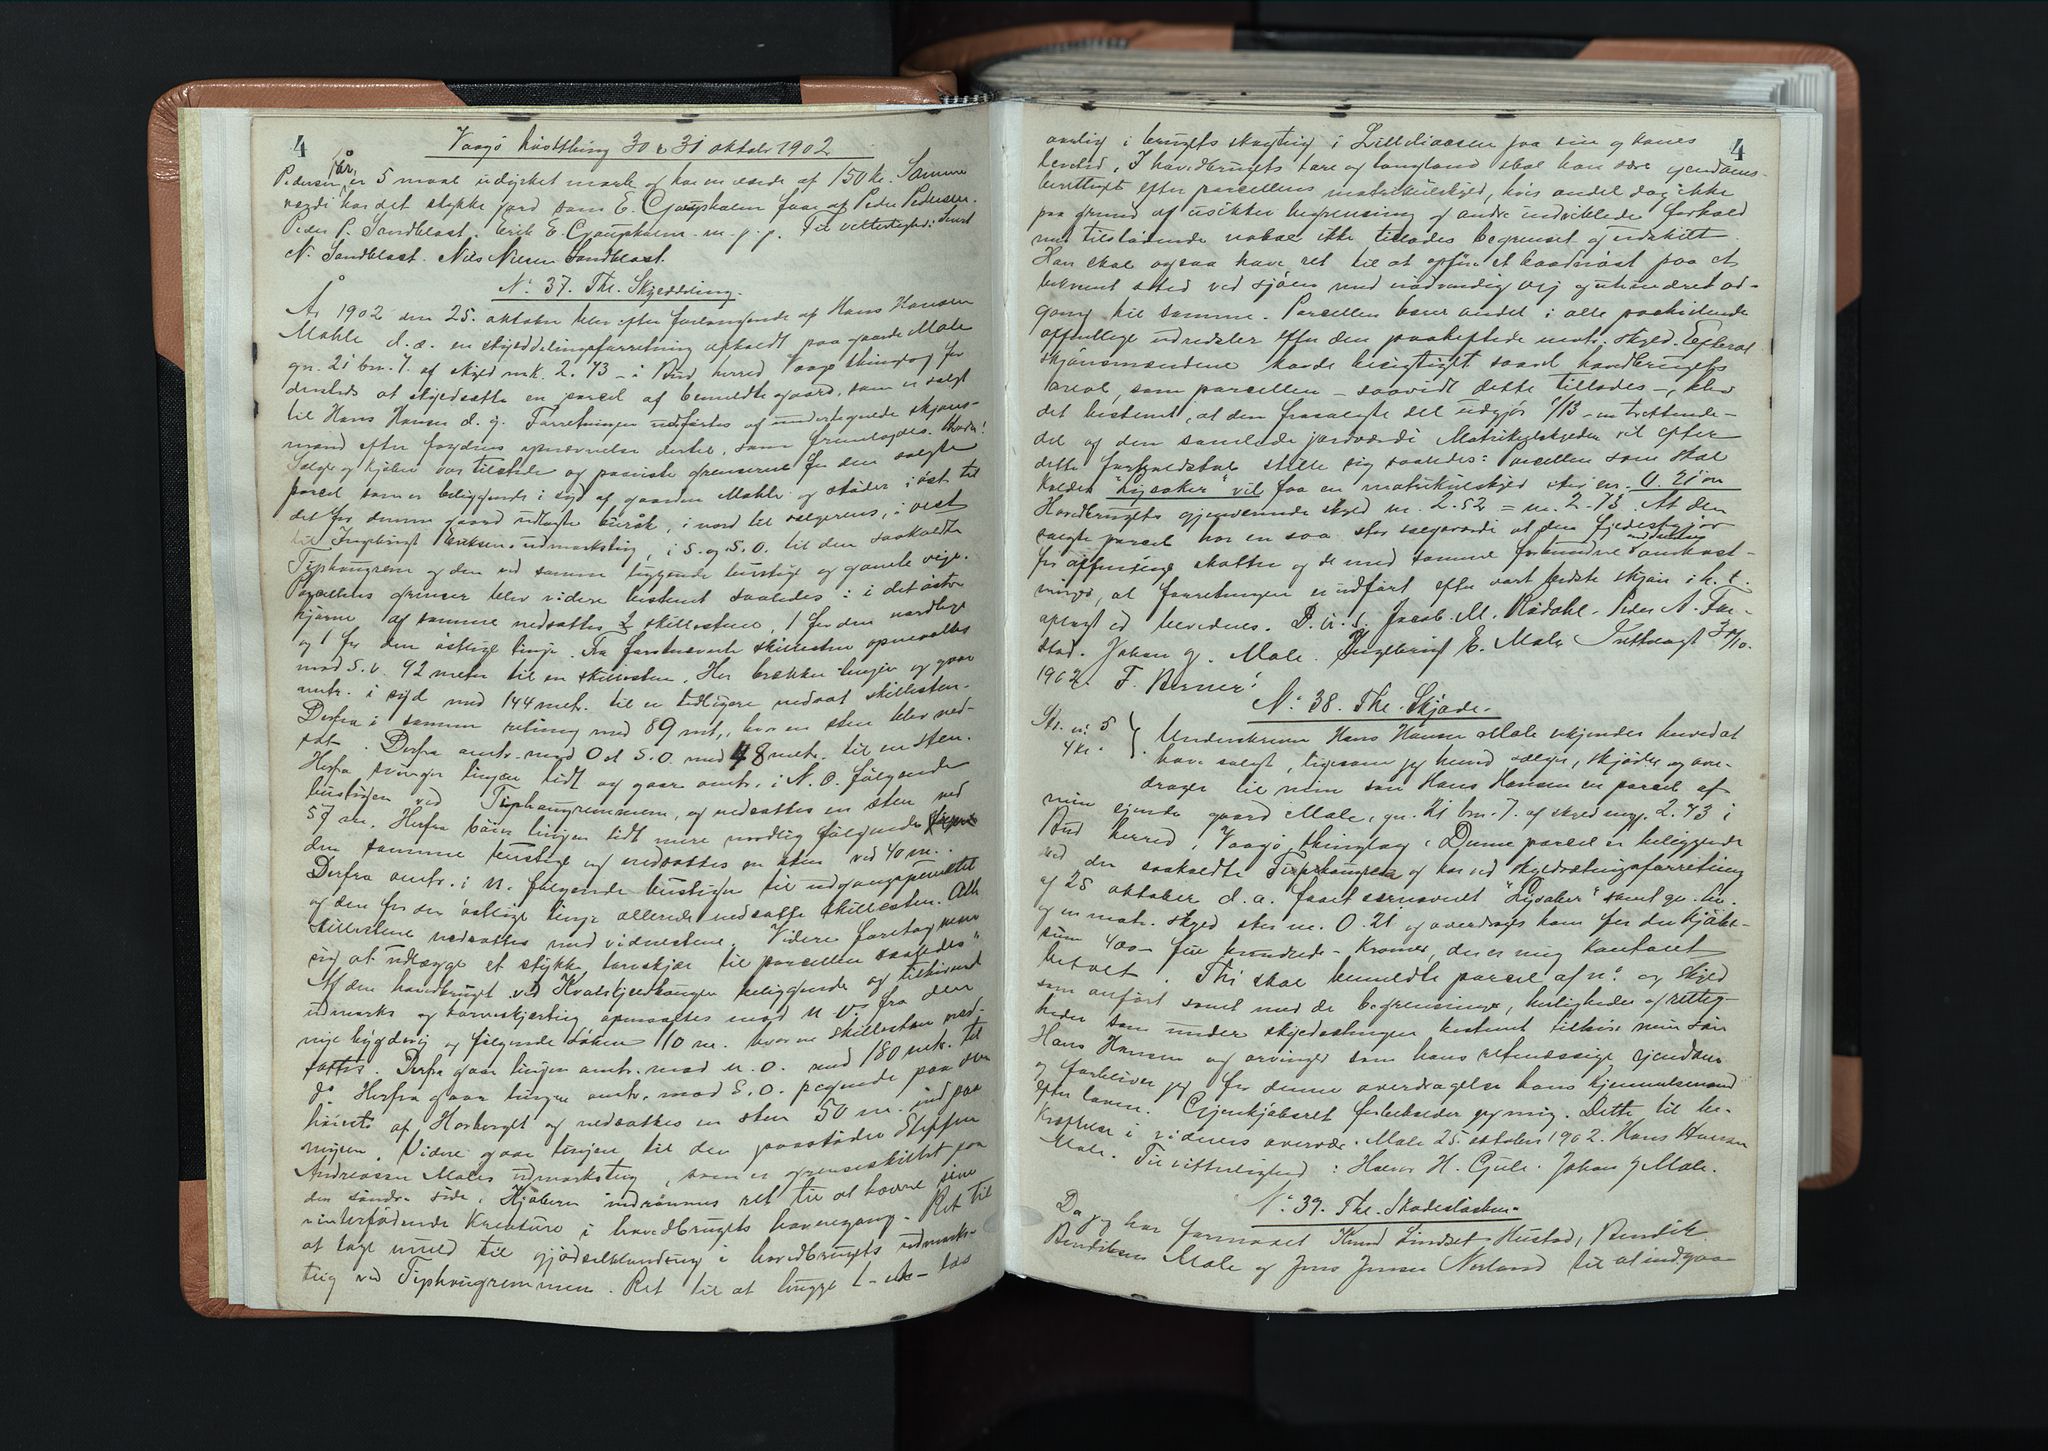 4
Vaagø høstthing 30 & 31 oktober 1902
får
Pedersen er 5 maal udyrket mark og har en værdi af 150 kr. Samme
værdi har det stykke jord som E. Gjøupholm faar af Peder Pedersen.
Peder P. Sandblast. Erik E. m. p. p. Til vitterlighed: Knut
N. Sandblast. Nils Nilsen Sandblast.
No 37. Thl. Skylddeling.
År 1902 den 25. oktober blev efter forlangende af Hans Hansen
Mahle d. æ. en skylddelingsforretning afholdt paa gaarden Male
gn. 21 bn. 7. af skyld mk. 2.73 - i Bud herred Vaagø thinglag for
derefter at skyldsætte en parcel af bemeldte gaard, som er solgt
til Hans Hansen d. y. Forretningen udførtes af undertegnede skjøns-
mænd efter fogdens opnævnelse dertil, som fremlagdes.
Sælger og kjøber var tilstede og paaviste grænserne for den solgte
parcel som er beliggende i syd af gaarden Mahle og støder i øst til
det for denne gaard udlagte buråk, i nord til sælgerens, i vest
til Ingebrigt Eriksens udmarksteig, i S. og S.O. til den saakaldte
Tiphaugrem og den ved samme liggende bustige og gamle veje.
Parcellens grænser blev videre bestemt saaledes: i det østre
hjørne af samme nedsattes 2 skillestene, 1 for den nordlige
og 1 for den østlige linje. Fra førstnævnte skillesten opmaaltes
mod S.V. 92 meter til en skillesten. Her brækker linjen og gaar
omtr. i syd med 144 metr. til en tidligere nedsat skillesten.
Derfra i samme retning med 89 mt., hvor en sten blev ned-
sat. Derfra omtr. mod O et S.O. med 48 metr. til en sten.
Herfra svinger linjen lidt og gaar omtr. i N.O. følgende
bustigen ved Tiphaugremmen, og nedsattes en sten ved
57 m. Herfra bøier linjen lidt mere nordlig følgende
den samme bustige og nedsattes en sten ved 40 m.
Derfra omtr. i N. følgende bustigen til udgangspunktet
og den for den østlige linje allerede nedsatte skillesten. Alle
skillestene nedsattes med vidnestene. Videre foretog man
sig at udlægge et stykke torvskjær til parcellen saaledes:
Af den hovedbruget ved Kvalskjedhaugen beliggende og tilhørende
udmarks og torveskjærteig opmaaltes mod N.V. fra den
nye bygdevej og følgende bækken 10 m. hvor en skillesten ned-
sattes. Derfra gaar linjen omtr. mod N.O. med 180 metr. til
do. Herfra gaar linjen omtr. mod S.O. pegende paa det
høieste af Horberget og nedsattes en sten 50 m. ind paa
myren. Videre gaar linjen til den paastødes Steffen
Andreassen Males udmarksteig, som er grænseskillet paa
den søndre side. Kjøberen indrømmes ret til at havne sine
vinterfødende kreature i hovedbrugets havnegang. Ret til
at tage muld til gjødselblanding i hovedbrugets udmark-
teig ved Tiphaugremmen. Ret til at hugge 1 - et - læs
4
aarlig i brugets skogteig i Lilleliaasen paa sin og hans
levetid. I hovedbrugets tare og tangland skal han være ejendoms-
berettiget efter parcellens matrikulskyld, hvis andel dog ikke
paa grund af usikker begrænsning og andre indviklede forhold
med tilstødende naboer ikke tillades begrænset og udskilt.
Han skal ogsaa have ret til at opføre et baadnøst paa et
bekvemt sted ved sjøen med nødvendig vej og uhindret ad-
gang til samme. Parcellen bærer andel i alle paahvilende
offentlige udredsler efter den paahæftede matr. skyld. Efterat
skjønsmændene havde besigtiget saavel hovedbrugets
areal, som parcellen - saavidt dette tillodes -, blev
det bestemt, at den frasolgte del udgjør 1/13 - en trettende-
del af den samlede jordværdi. Matrikulskylden vil efter
dette forholdstal stille sig saaledes: Parcellen som skal
kaldes "Lysaker" vil faa en matrikulskyld stor m. 0.21 øre
Hovedbrugets gjenværende skyld m. 2.52 = m. 2.73. At den
solgte parcel har en saa stor salgsværdi at den fyldestgjør
for offentlige skatter og de med samme forbundne omkost-
ninger, at forretningen er udført efter vort bedste skjøn i h. t.
aplagt ed bevidnes. D. u. s. Jacob M. Rødahl. Peder A. Far-
stad. Johan J. Male. Ingebrigt E. Male Indbragt 30/10.
1902. F. Berner.
No 38. Thl. Skjøde.
St. m: 5
4 kr.
Underskrevne Hans Hansen Male erkjender herved at
have solgt, ligesom jeg herved sælger, skjøder og over-
drager til min søn Hans Hansen en parcel af
min ejende gaard Male, gn. 21 bn. 7. af skyld m. 2.73 i
Bud herred, Vaagø thinglag. Denne parcel er beliggende
ved den saakaldte Tiphaugrem og har ved skyldsætningsforretning
af 25 oktober d. a. faaet bernavnet "Lysaker" samt gn. bn.
og en matr. skyld stor m. 0.21 og overdrages ham for den kjøbe-
sum 400 - fire hundrede - kroner, der er mig kontant
betalt. Thi skal bemeldte parcel af no og skyld
som anført samt med de begrænsninger, herligheder og rettig-
heder som under skyldsætningen bestemt tilhøre min søn
Hans Hansen og arvinger som hans retmæssige ejendom
og forbliver jeg for denne overdragelse hans hjemmelsmand
efter loven. Gjenkjøbsret forbeholder jeg mig. Dette til be-
kræftelse i vidners overvær. Male 25. oktober 1902. Hans Hansen
Male. Til vitterlighed: Halvor H. Gule. Johan J Male.
No 39. Thl. Skadesløsbrev.
Da jeg har formaaet Knud Lindset Hustad, Bendik
Bendiksen Male og Jens Jensen Norland til at indgaa